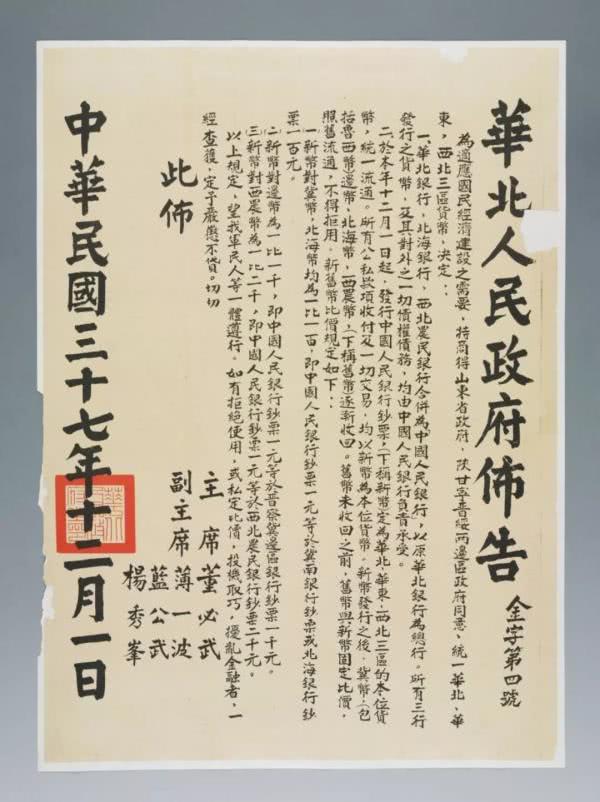 華北人民政府佈告
金字第四號
為適應國民經濟建設之需要，特商得山東省政府，陝甘寧晉綏兩邊區政府同意，統一華北、華
東，西北三區貨幣，決定：
一、華北銀行，北海銀行，西北農民銀行合併為中國人民銀行，以原華北銀行為總行。所有三行
發行之貨幣，及其對外之一切債權債務，均由中國人民銀行負責承受。
二於本年十二月一日起，發行中國人民銀行鈔票，（下稱新幣定為華北、華東、西北三區的本位貨
幣，統一流通。所有公私款項收付及一切交易，均以新幣為本位貨幣。新幣發行之後，冀幣，（包
括魯西幣邊幣，北海幣，西農幣，（下稱舊幣逐漸收回。舊幣未收回之前，舊幣與新幣固定比價，
照舊流通，不得拒用。新舊幣比價規定如下：
㈠新幣對冀幣，北海幣均為一比一百，即中國人民銀行鈔票一元等於冀南銀行鈔票或北海銀行鈔
票一百元。
㈡新幣對邊幣為一比一千，即中國人民銀行鈔票一元等於晉察冀邊區銀行鈔票一千元。
㈢新幣對西農幣為一比二千，即中國人民銀行鈔票一元等於西北農民銀行鈔票二千元。
以上規定，望我軍民人等一體遵行。如有拒絕使用，或私定比價，投機取巧，擾亂金融者，一
經查獲，定予嚴懲不貸。切切
此佈
主席董必武
副主席薄一波
藍公武
楊秀峯
中華民國三十七年十二月一日